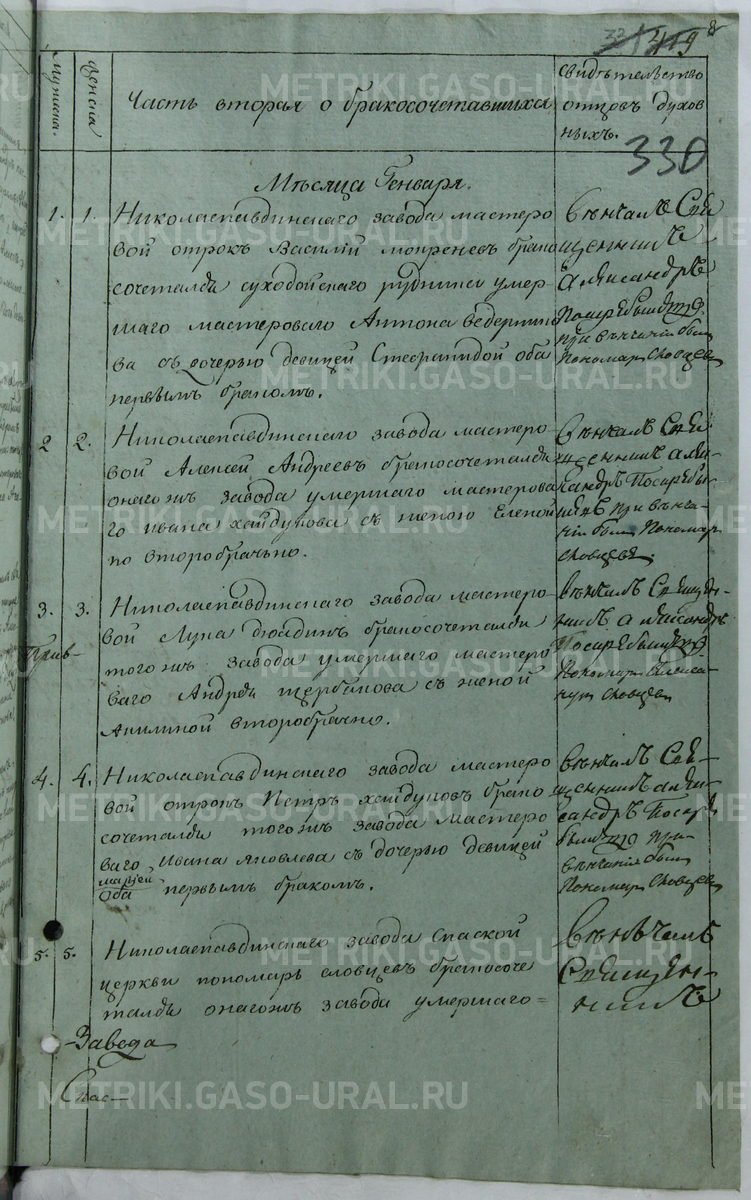 419
330
Мужеска.
Женска
Часть вторая о бракосочетавшихся
свидѣтельство
отцевъ духов
ныхъ.
Мѣсяца Генваря.
1. 1. Николаепавдинскаго завода мастеро
вой отрокъ Василий мокреневъ брако
сочетался суходойскаго рудника умер
шаго мастероваго Антона ведерник
ва съ дочерью девицей Стефанидой оба
первымъ бракомъ.
вѣнчалъ Свя
щенникъ
Александръ
Посаребышевъ
при вѣнчании былъ
Пономарь Словцевъ
2 2. Николаепавдинскаго завода мастеро
вой Алексей Андреевъ бракосочетался
онагожъ завода умершаго мастерова
го ивана хайдукова съ женою Еленой
по второбрачно.
Вѣнчалъ Свя
щенникъ Алек
сандръ Посаребы
шевъ при вѣнча
нии былъ Пономарь
Словцевъ.
3. 3. Николаепавдинскаго завода мастеро
вой Лука дюдинъ бракосочетался
тогожъ завода умершаго мастеро
ваго Андрея щербакова съ женой
Акилиной второбрачно.
вѣнчалъ Священ
никъ Александръ
Посаребышевъ
Пономарь
Словцевъ
4. 4. Николаепавдинскаго завода мастеро
вой отрокъ Петръ хайдуковъ брако
сочетался тогожъ завода мастеро
ваго Ивана яковлева съ дочерью девицей
марьей
оба первымъ бракомъ.
вѣнчалъ Свя
щенникъ Алек
сандръ Посаре
бышевъ при
вѣнчании былъ
Пономарь Словцевъ
5. 5. Николаепавдинскаго завода Спаской
церкви пономарь словцевъ бракосоче
тался онагожъ завода умершаго
Вѣнчалъ
Священ
никъ
Завода
Спас
METRIKI.GASO-URAL.RU